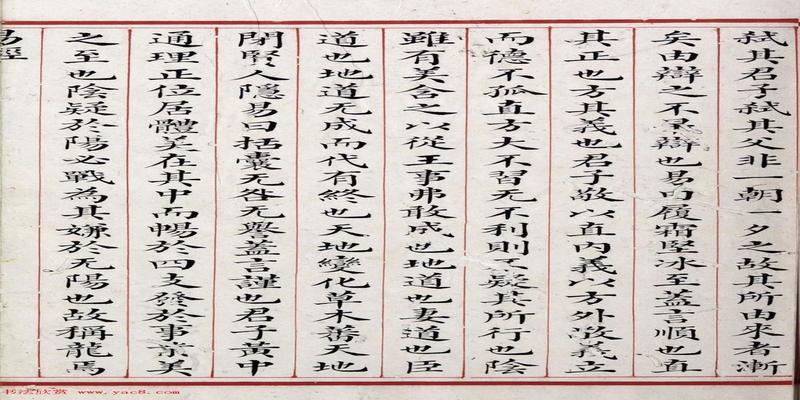 弒其君子弒其父非一朝一夕之故其所由來者漸
矣由辯之不早辯也易曰履霜堅冰至蓋言順也直
其正也方其義也君子敬以直內義以方外敬義立
而德不孤直方大不習无不利則不疑其所行也陰
雖有美含之以從王事弗敢成也地道也妻道也臣
道也地道无成而代有終也天地變化草木蕃天地
閉賢人隱易曰括囊无咎无譽蓋言謹也君子黃中
通理正位居體美在其中而暢於四支發於事業美
之至也陰疑於陽必戰為其嫌於无陽也故稱龍焉
易經
书法欣赏 www.yac8.com